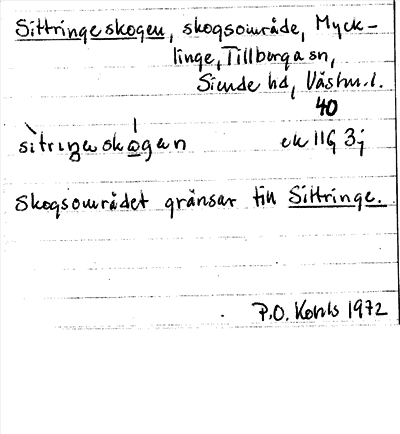 Sittringeskogen, skogsområde, Myck-
linge, Tillberga sn,
Siende hd, Västm.l.
40
sìtriŋəskógən ek 11G 3j
Skogsområdet gränsar till Sittringe.
P.O. 1972